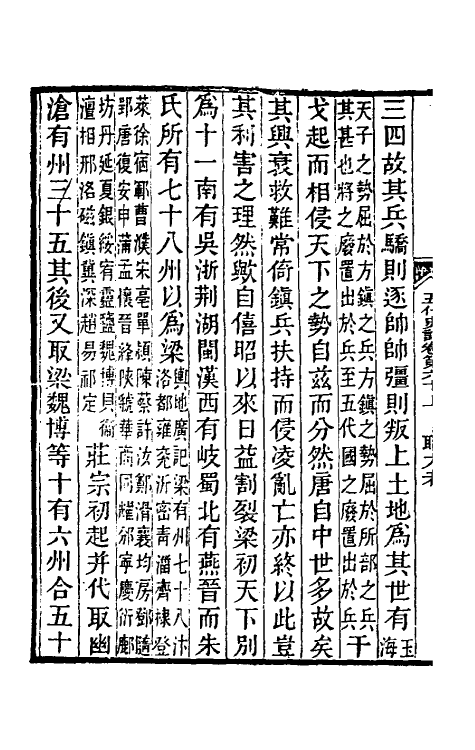 三四故其兵驕則逐帥帥彊則叛上土地爲其世有玉海
天子之勢屈於方鎮之兵方鎮之勢屈於所部之兵
其甚也將之廢置出於兵至五代國之廢置出於兵
干
戈起而相侵天下之勢自兹而分然唐自中世多故矣
其興衰救難常倚鎮兵扶持而侵凌亂亡亦終以此豈
其利害之理然歟自僖昭以來日益割裂梁初天下別
爲十一南有吳浙荆湖閩漢西有岐蜀北有燕晉而朱
氏所有七十八州以爲梁
輿地廣記梁有州七十八汴
洛都雍兖沂密靑淄齊棣登
萊徐宿鄆曹濮宋亳單潁陳蔡許汝鄭滑襄均房鄧隨
郢唐復安申蒲孟懷晉絳陜虢華商同耀邠寧慶衍鄜
坊丹延夏銀綏宥靈鹽魏博貝衞
澶相邢洺磁鎮冀深趙易祁定
莊宗初起并代取幽
滄有州三十五其後又取梁魏博等十有六州合五十